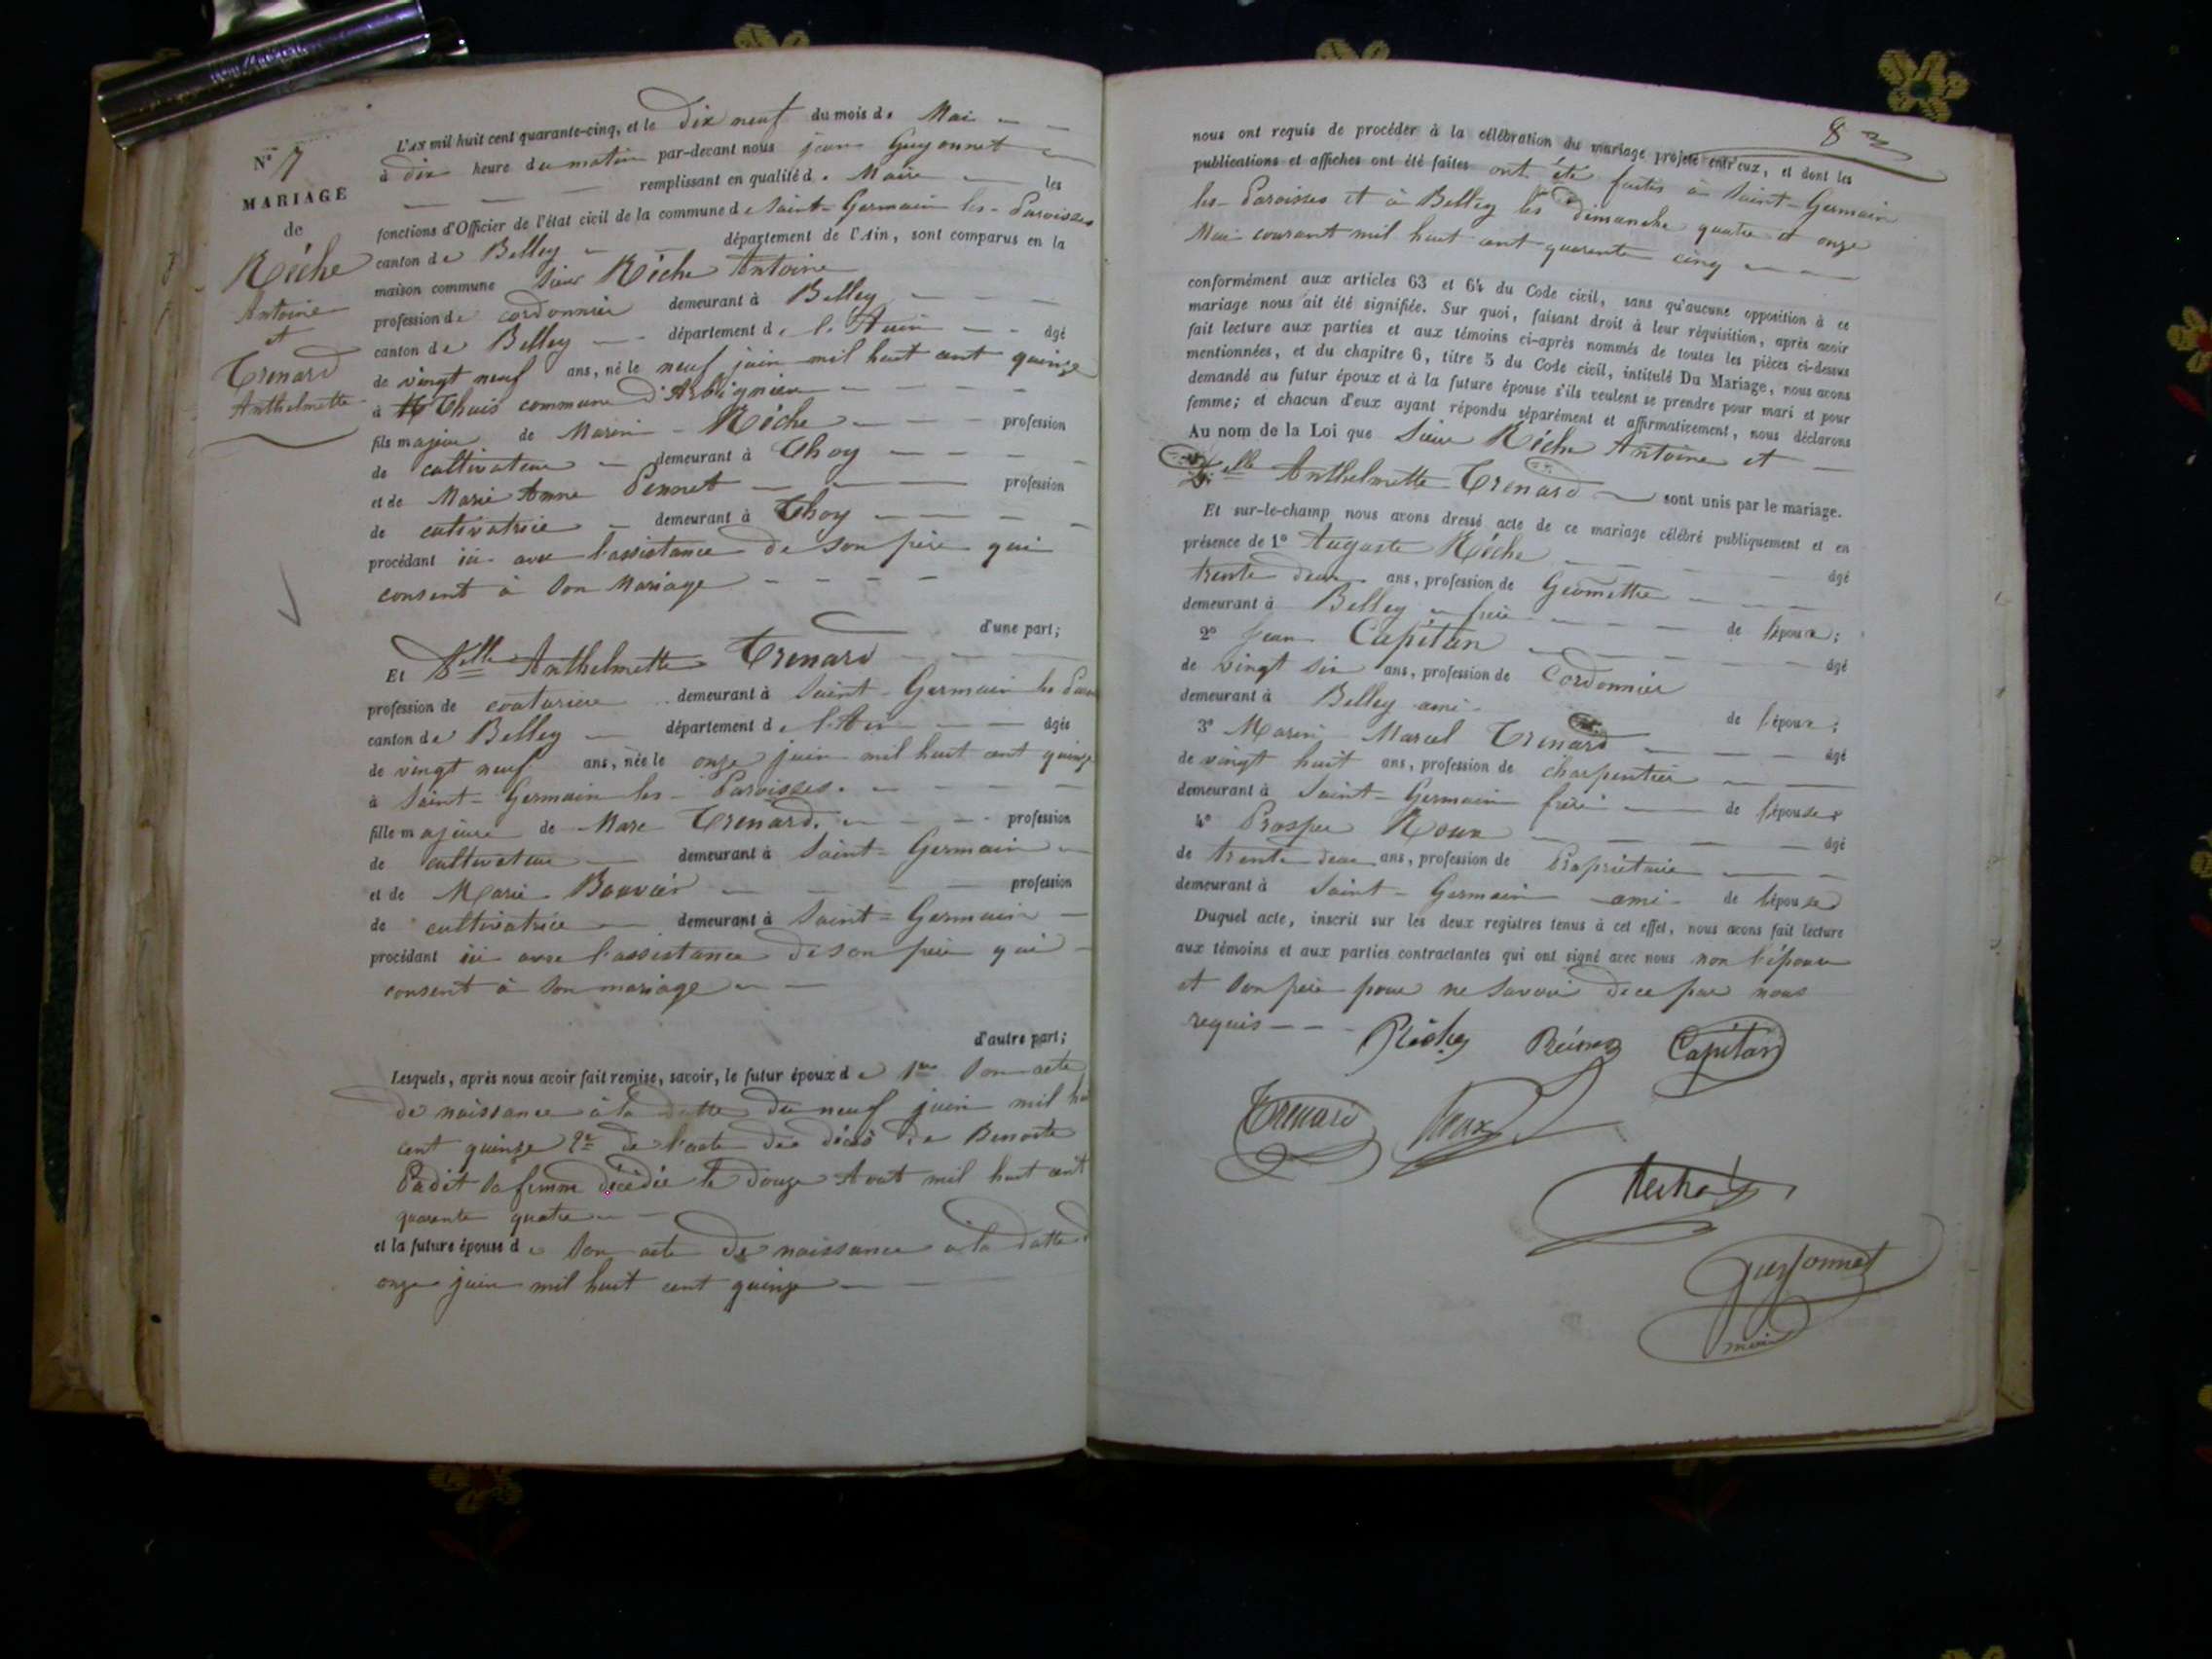 N° 7
MARIAGE
de
Réche
Antoine
et
Trenard
Anthelmette
L'AN mil huit cent quarante-cinq, et le dix neuf du mois de Mai
à dix heure du matin par-devant nous jean Guyonnet
remplissant en qualité de Maire les
fonctions d'Officier de l'état civil de la commune de Saint-Germain les-Paroisses
canton de Belley département de l'Ain, sont comparus en la
maison commune Sieur Réche Antoine
profession de cordonnier demeurant à Belley
canton de Belley département de l'Ain âgé
de vingt neuf ans, né le neuf juin mil huit cent quinze
à Thuis commune d'Arbignieu
fils majeur de Marin Réche profession
de cultivateur demeurant à Thoy
et de Marie Anne Pennet profession
de cultivatrice demeurant à Thoy
procédant ici avec l'assistance de son père qui
consent à son Mariage
d'une part;
Et Delle Anthelmette Trenard
profession de couturiere demeurant à Saint-Germain les Paroi
canton de Belley département de l'Ain âgée
de vingt neuf ans, née le onze juin mil huit cent quinze
à Saint-Germain les-Paroisses.
fille majeure de Marc Trenard. profession
de cultivateur demeurant à Saint-Germain
et de Marie Bouvier profession
de cultivatrice demeurant à Saint-Germain
procédant ici avec l'assistance de son père qui
consent à son mariage
d'autre part;
Lesquels, après nous avoir fait remise, savoir, le futur époux de 1° Son acte
de naissance à la datte du neuf juin mil hui
cent quinze 2° de l'acte de décès de Benoite
Padit sa femme décédée le douze Aout mil huit cent
quarente quatre
et la future épouse de Son acte de naissance à la datte d
onze juin mil huit cent quinze
8
nous ont requis de procéder à la célébration du mariage projeté entr'eux, et dont les
publications et affiches ont été faites ont été faites à Saint-Germain
les-Paroisses et à Belley les Dimanche quatre et onze
Mai courant mil huit cent quarente cinq
conformément aux articles 63 et 64 du Code civil, sans qu'aucune opposition à ce
mariage nous ait été signifiée. Sur quoi, faisant droit à leur réquisition, après avoir
fait lecture aux parties et aux témoins ci-après nommés de toutes les pièces ci-dessus
mentionnées, et du chapitre 6, titre 5 du Code civil, intitulé Du Mariage, nous avons
demandé au futur époux et à la future épouse s'ils veulent se prendre pour mari et pour
femme; et chacun d'eux ayant répondu séparément et affirmativement, nous déclarons
Au nom de la Loi que Sieur Réche Antoine et
Delle Anthelmette Trenard sont unis par le mariage.
Et sur-le-champ nous avons dressé acte de ce mariage célébré publiquement et en
présence de 1° Auguste Réche âgé
trente deux ans, profession de Géomettre
demeurant à Belley frère de l'époux;
2° Jean Capitan âgé
de vingt six ans, profession de Cordonnier
demeurant à Belley ami de l'époux;
3° Marin Marcel Trenard âgé
de vingt huit ans, profession de charpentier
demeurant à Saint-Germain frère de l'épouse
4° Prosper Roux âgé
de trente deux ans, profession de Propriétaire
demeurant à Saint-Germain ami de l'épouse
Duquel acte, inscrit sur les deux registres tenus à cet effet, nous avons fait lecture
aux témoins et aux parties contractantes qui ont signé avec nous non l'épouse
et son père pour ne savoir de ce par nous
requis
Capitan
Trenard Roux
Guyonnet
maire